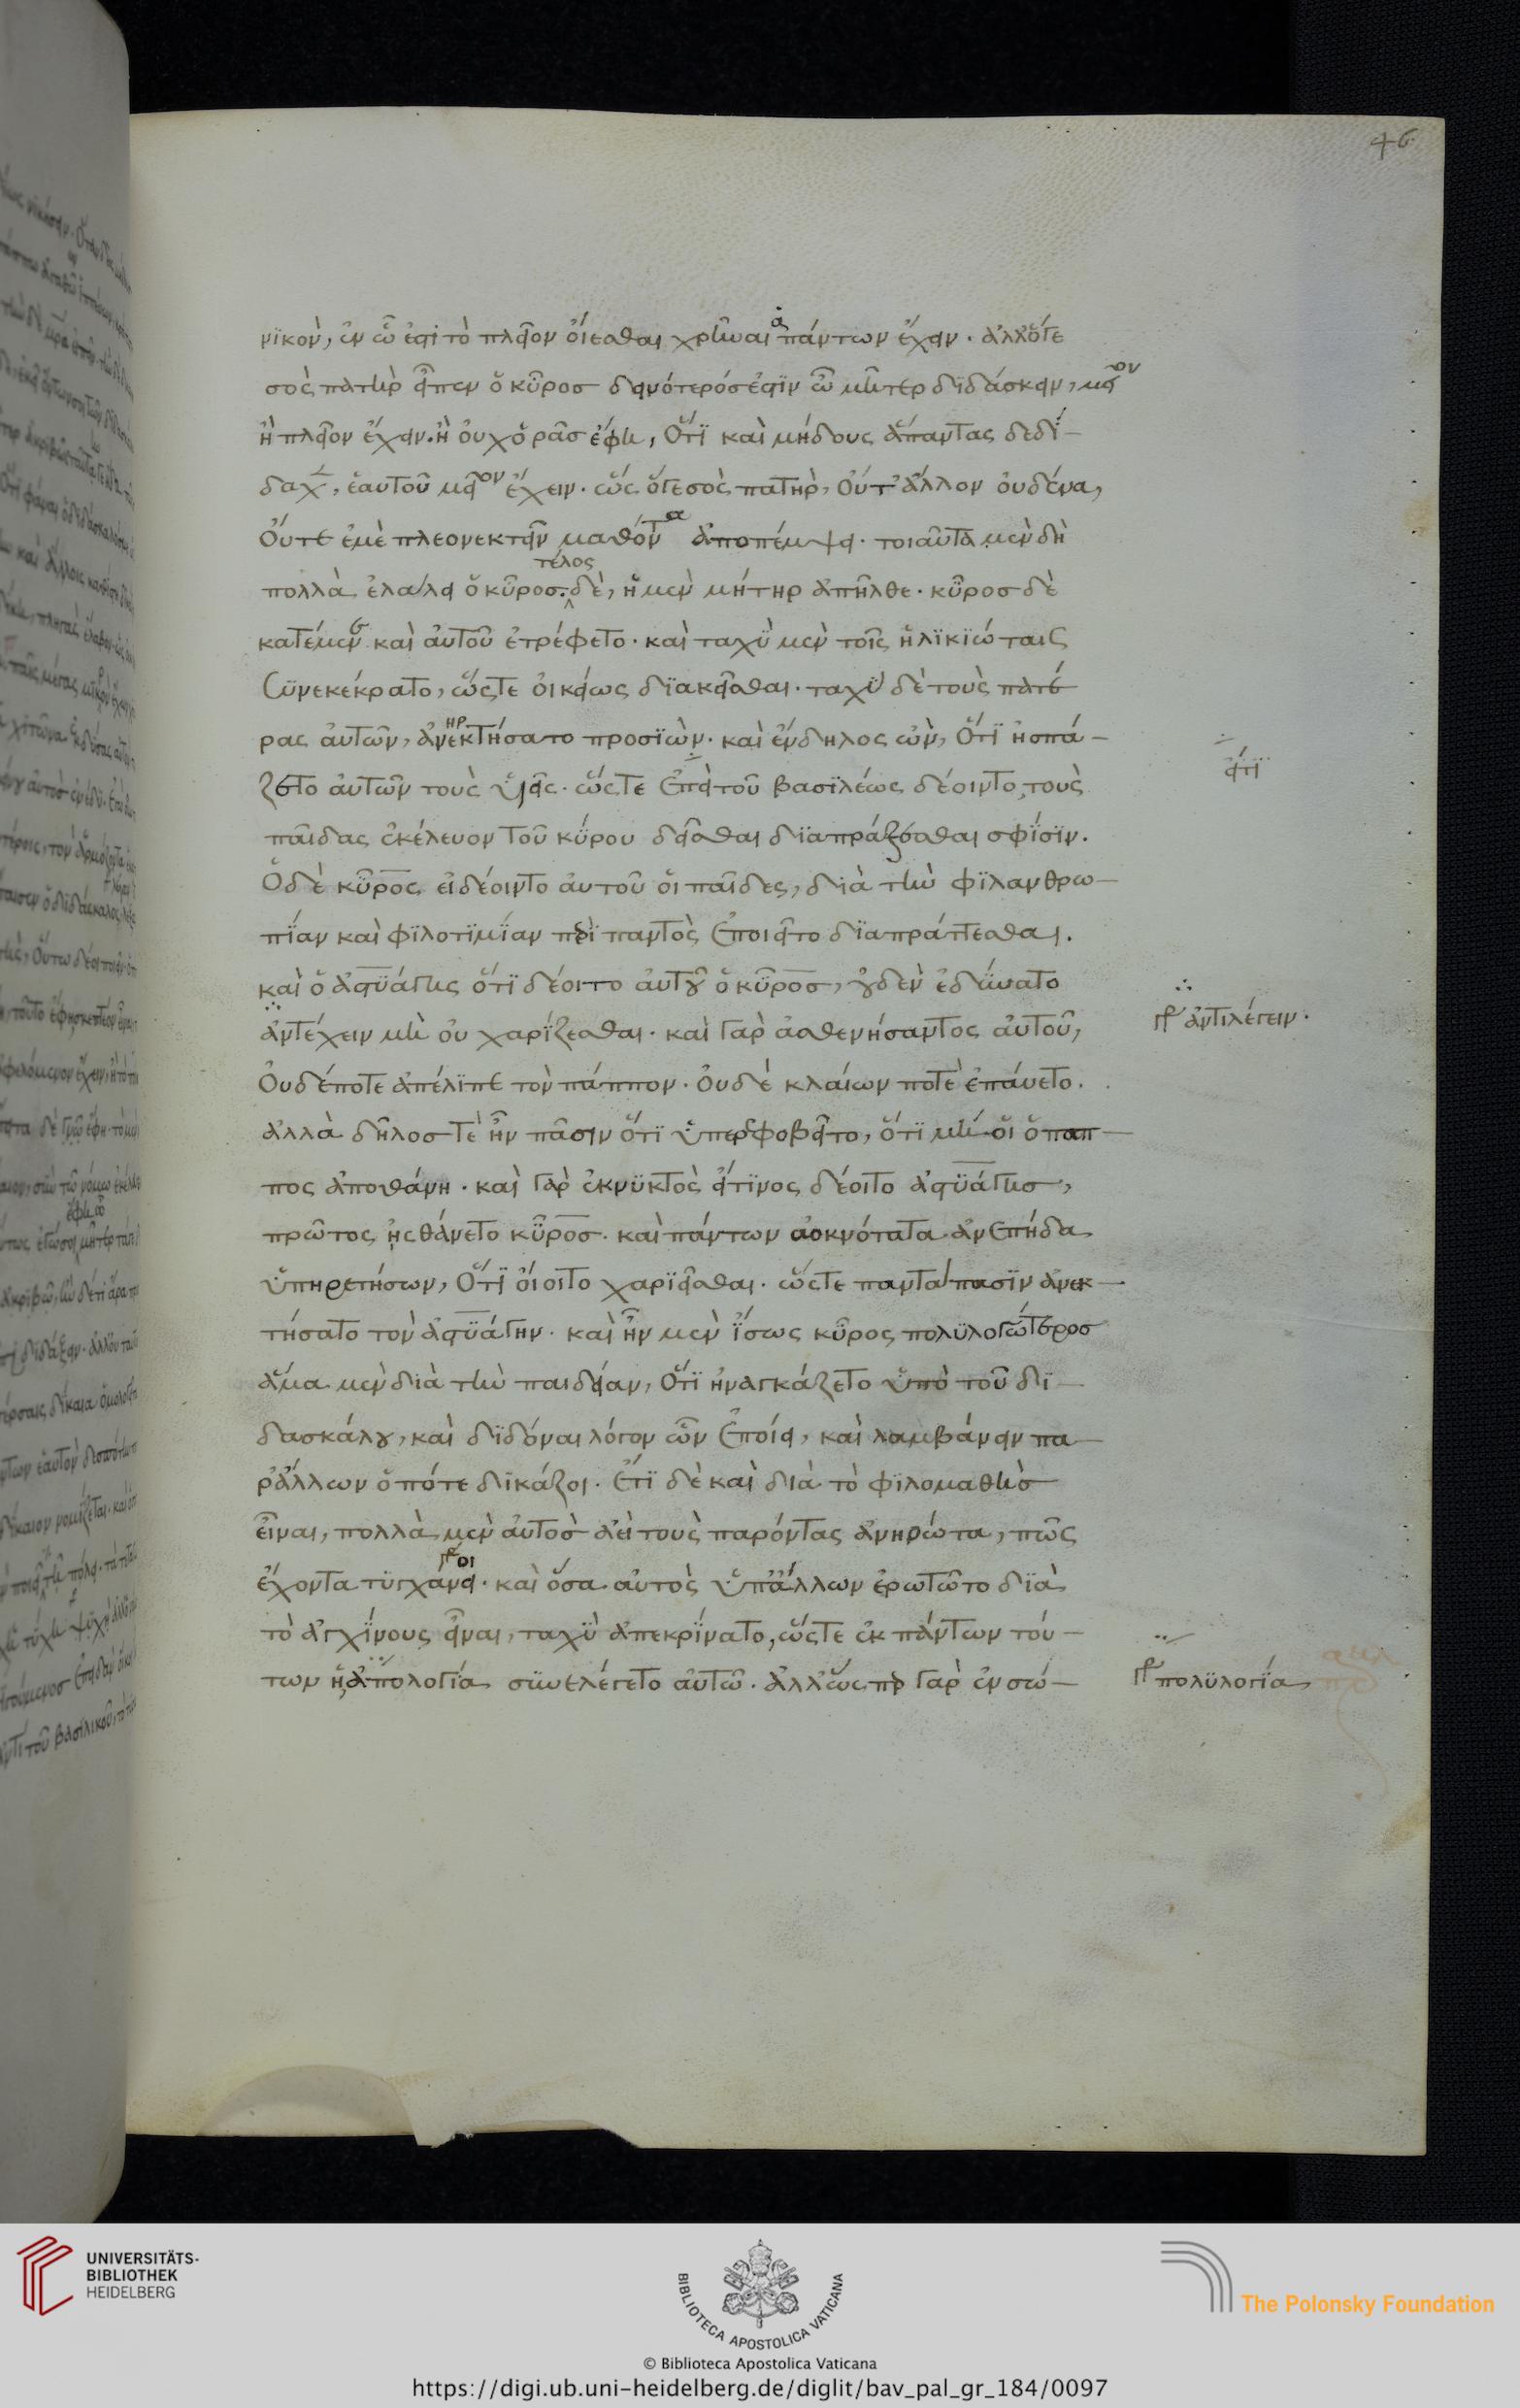 46
νϊκὸν, ἐν ὧ ἐστὶ τὸ πλεῖον οἴεσθαι χρῆναι ἁπάντων ἔχειν. ἀλλ' ὅγε
σὸς πατὴρ εἶπεν ὁ κῦρος δεινότερός ἐστϊν ὦ μῆτερ δϊδάσκειν, μεῖον
ἢ πλεῖον ἔχειν. ἢ οὐχ ὁρᾶς ἔφη, ὅτϊ καὶ μήδους ἅπαντας δεδΐ-
δαχε, ἑαυτοῦ μεῖον ἔχειν. ὥς ὅγε σὸς πατὴρ, οὔτ' ἄλλον οὐδένα,
οὔτε ἐμὲ πλεονεκτεῖν μαθόντα ἀποπέμψει. τοιαῦτα μὲν δὴ
πολλὰ ἐλάλει ὁ κῦρος. τέλος δὲ, ἡ μὲν μήτηρ ἀπῆλθε. κῦρος δὲ
κατέμενε καὶ αὐτοῦ ἐτρέφετο. καὶ ταχὺ μὲν τοῖς ἡλϊκϊώταις
συνεκέκρατο, ὥστε οἰκείως δϊακεῖσθαι. ταχὺ δὲ τοὺς πατέ
ρας αὐτῶν, ἀνεκτήσατο προσϊὼν. καὶ ἔνδηλος ὢν, ὅτϊ ἠσπά-
ζετο αὐτῶν τοὺς υἱεῖς. ὥστε ἐπεὶ τοῦ βασϊλέως δέοιντο, τοὺς
εἴ τϊ
παῖδας ἐκέλευον τοῦ κύρου δεῖσθαι δϊαπράξεσθαι σφΐσϊν.
ὁ δὲ κῦρος εἰ δέοιντο αὐτοῦ οἱ παῖδες, διὰ τὴν φϊλανθρω-
πΐαν καὶ φϊλοτϊμΐαν περὶ παντὸς ἐποιεῖτο δϊαπράττεσθαι.
καὶ ὁ ἀστυάγης ὅτϊ δέοιτο αὐτοῦ ὁ κῦρος, οὐδὲν ἐδύνατο
ἀντέχειν μὴ οὐ χαρΐζεσθαι. καὶ γὰρ ἀσθενήσαντος αὐτοῦ,
γρ ἀντιλέγειν.
οὐδέποτε ἀπέλϊπε τὸν πάππον. οὐδὲ κλαίων ποτὲ ἐπαύετο.
ἀλλὰ δῆλος τὲ ἦν πᾶσιν ὅτϊ ὑπερεφοβεῖτο, ὅτϊ μή οἱ ὁ παπ-
πος ἀποθάνη. καὶ γὰρ ἐκ νυκτὸς εἴ τϊνος δέοιτο ἀστυάγης,
πρῶτος ᾐσθάνετο κῦρος. καὶ πάντων ἀοκνότατα ἀνεπήδα
ὑπηρετήσων, ὅτϊ οἴοιτο χαρϊεῖσθαι. ὥστε πανταπασϊν ἀνεκ-
τήσατο τὸν ἀστυάγην. καὶ ἦν μὲν ἴσως κῦρος πολυλογώτερος
ἅμα μὲν διὰ τὴν παιδείαν, ὅτϊ ἠναγκάζετο ὑπὸ τοῦ δϊ-
δασκάλου, καὶ δϊδόναι λόγον ὧν ἐποίει, καὶ λαμβάνειν πα-
ρ' ἄλλων ὁπότε δϊκάζοι. ἔτϊ δὲ καὶ διὰ τὸ φϊλομαθὴς
εἶναι, πολλὰ μὲν αὐτὸς ἀεὶ τοὺς παρόντας ἀνηρώτα, πῶς
ἔχοντα τυγχάνει. καὶ ὅσα αὐτὸς ὑπ' ἄλλων ἐρωτῶτο δϊὰ
τὸ ἀγχΐνους εἶναι, ταχὺ ἀπεκρΐνατο, ὥστε ἐκ πάντων τού-
των ἡ ἀπολογία συνελέγετο αὐτῶ. ἀλλ' ὥσπερ γὰρ ἐν σώ-
γρ πολυλογΐα
UNIVERSITÄTS-
BIBLIOTHEK
HEIDELBERG
BIBLIOTECA APOSTOLICA VATICANA
The Polonsky Foundation
© Biblioteca Apostolica Vaticana
https://digi.ub.uni-heidelberg.de/diglit/bav_pal_gr_184/0097